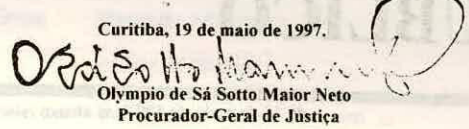 Curitiba, 19 de maio de 1997.
Olympio de Sá Sotto Maior Neto
Procurador-Geral de Justiça